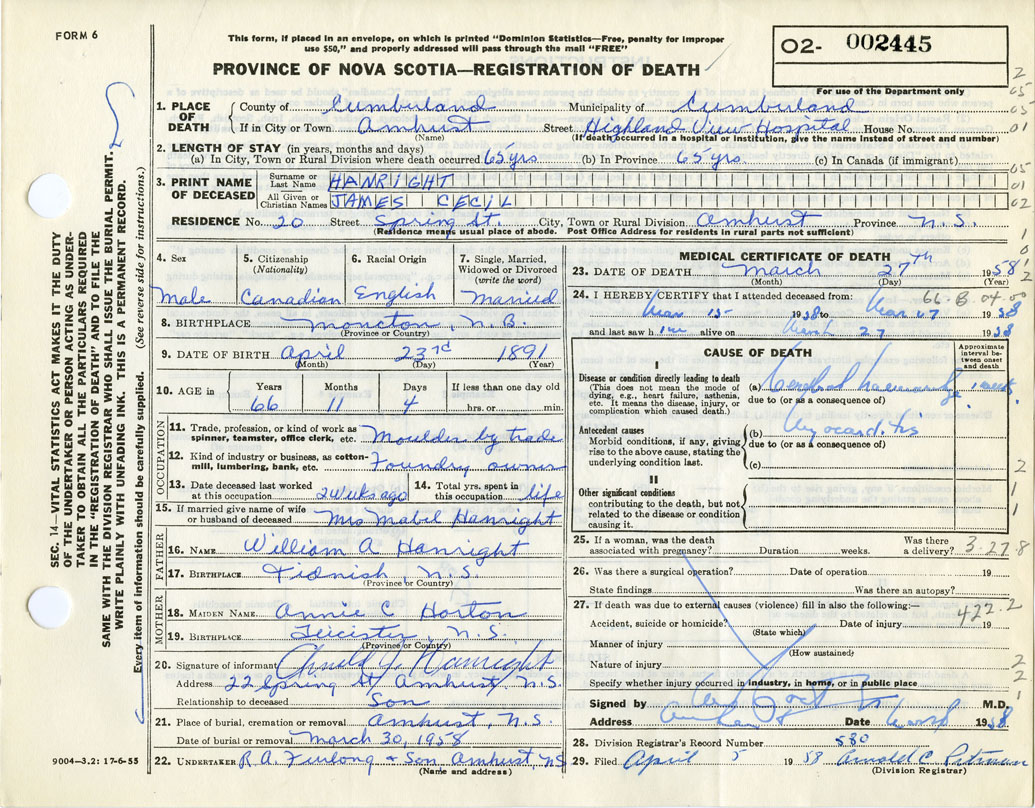 FORM 6
This form, if placed in an envelope, on which is printed "Dominion Statistics—Free, penalty for improper
use $50," and properly addressed will pass through the mail "FREE"
PROVINCE OF NOVA SCOTIA—REGISTRATION OF DEATH
02- 002445
For use of the Department only
SEC. 14—VITAL STATISTICS ACT MAKES IT THE DUTY
OF THE UNDERTAKER OR PERSON ACTING AS UNDER-
TAKER TO OBTAIN ALL THE PARTICULARS REQUIRED
IN THE "REGISTRATION OF DEATH" AND TO FILE THE
SAME WITH THE DIVISION REGISTRAR WHO SHALL ISSUE THE BURIAL PERMIT.
WRITE PLAINLY WITH UNFADING INK. THIS IS A PERMANENT RECORD.
Every item of information should be carefully supplied. (See reverse side for instructions.)
1. PLACE OF DEATH County of Cumberland Municipality of Cumberland
If in City or Town Amhust Street Highland View Hospital House No.
(Name) (If death occurred in a hospital or institution, give the name instead of street and number)
2. LENGTH OF STAY (in years, months and days)
(a) In City, Town or Rural Division where death occurred 65 yrs. (b) In Province 65 yrs. (c) In Canada (if immigrant)
3. PRINT NAME OF DECEASED Surname or Last Name HANRIGHT
All Given or Christian Names JAMES CECIL
RESIDENCE No. 20 Street Spring St. City, Town or Rural Division Amhust Province N.S.
(Residence means usual place of abode. Post Office Address for residents in rural parts not sufficient)
4. Sex 5. Citizenship (Nationality) 6. Racial Origin 7. Single, Married, Widowed or Divorced (write the word)
Male Canadian English Married
8. BIRTHPLACE Moncton, N.B.
(Province or Country)
9. DATE OF BIRTH April 23rd 1891
(Month) (Day) (Year)
10. AGE in Years Months Days If less than one day old
66 11 4 hrs. or min.
OCCUPATION
11. Trade, profession, or kind of work as spinner, teamster, office clerk, etc. Moulder by trade
12. Kind of industry or business, as cotton-mill, lumbering, bank, etc. Foundry owner
13. Date deceased last worked at this occupation 2 weeks ago 14. Total yrs. spent in this occupation life
15. If married give name of wife or husband of deceased Mrs Mabel Hanright
FATHER
16. NAME William A Hanright
17. BIRTHPLACE Tidnish, N.S.
(Province or Country)
MOTHER
18. MAIDEN NAME Annie C Horton
19. BIRTHPLACE Leicister, N.S.
(Province or Country)
20. Signature of informant Hanright
Address 22 Spring St Amhust, N.S.
Relationship to deceased Son
21. Place of burial, cremation or removal Amhust, N.S.
Date of burial or removal March 30, 1958
22. UNDERTAKER R.A. Furlong & Son Amhust, NS
(Name and address)
9004—3.2: 17-6-55
MEDICAL CERTIFICATE OF DEATH
23. DATE OF DEATH March 27th 1958
(Month) (Day) (Year)
24. I HEREBY CERTIFY that I attended deceased from:
Mar 15 1958 to Mar 27 1958
66-B 04-0
and last saw him alive on March 27 1958
CAUSE OF DEATH
Approximate interval between onset and death
I
Disease or condition directly leading to death
(This does not mean the mode of dying, e.g., heart failure, asthenia, etc. It means the disease, injury, or complication which caused death.)
(a) Cerebral haemorrhage
due to (or as a consequence of)
Antecedent causes
Morbid conditions, if any, giving rise to the above cause, stating the underlying condition last.
(b) Myocarditis
due to (or as a consequence of)
(c)
II
Other significant conditions
contributing to the death, but not related to the disease or condition causing it.
25. If a woman, was the death associated with pregnancy? Duration weeks. Was there a delivery? 3-27-8
26. Was there a surgical operation? Date of operation 19
State findings Was there an autopsy?
27. If death was due to external causes (violence) fill in also the following:—
422.2
Accident, suicide or homicide? Date of injury 19
(State which)
Manner of injury
(How sustained)
Nature of injury
Specify whether injury occurred in industry, in home, or in public place
Signed by M.D.
Address Date 1958
28. Division Registrar's Record Number 580
29. Filed April 5 1958 Arnold C Pitman
(Division Registrar)